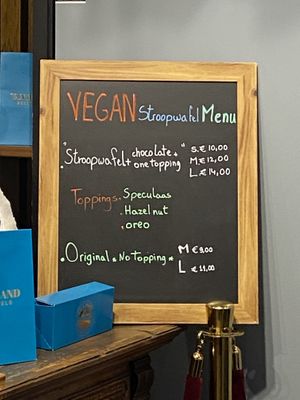 VEGAN Stroopwafel Menu
"Stroopwafel + chocolate + one topping"
S. € 10,00
M. € 12,00
L. € 14,00
Toppings • Speculaas
• Hazelnut
• oreo
• Original • No topping •
M € 9,00
L € 11,00
LAND